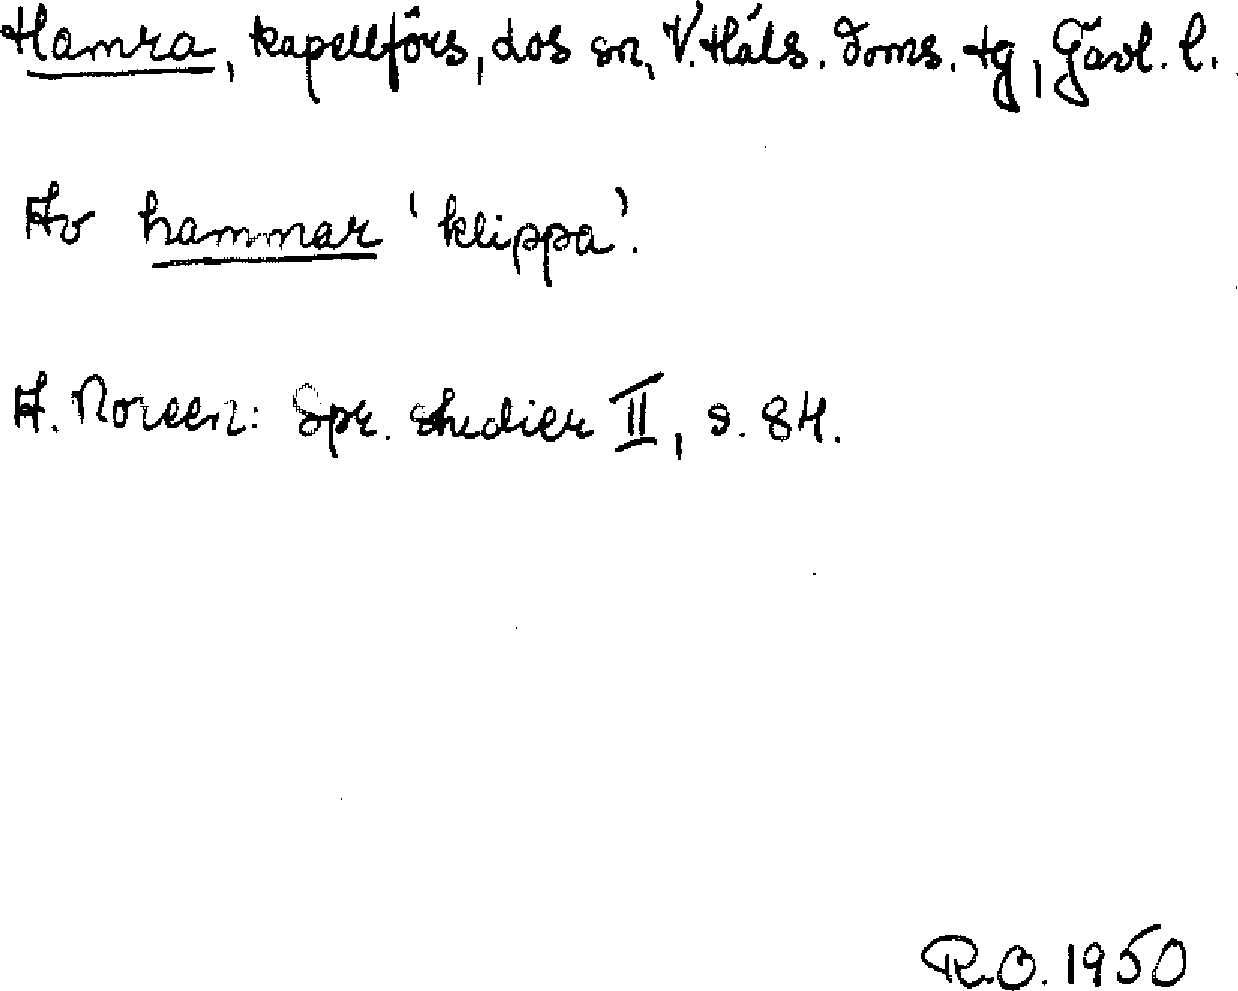 Hamra, kapellförs, Los sn, V. Häls. doms. tg, Gävl. l.
Av hammar 'klippa'.
A. Noreen: Spr. studier II, s. 84.
R.O. 1950